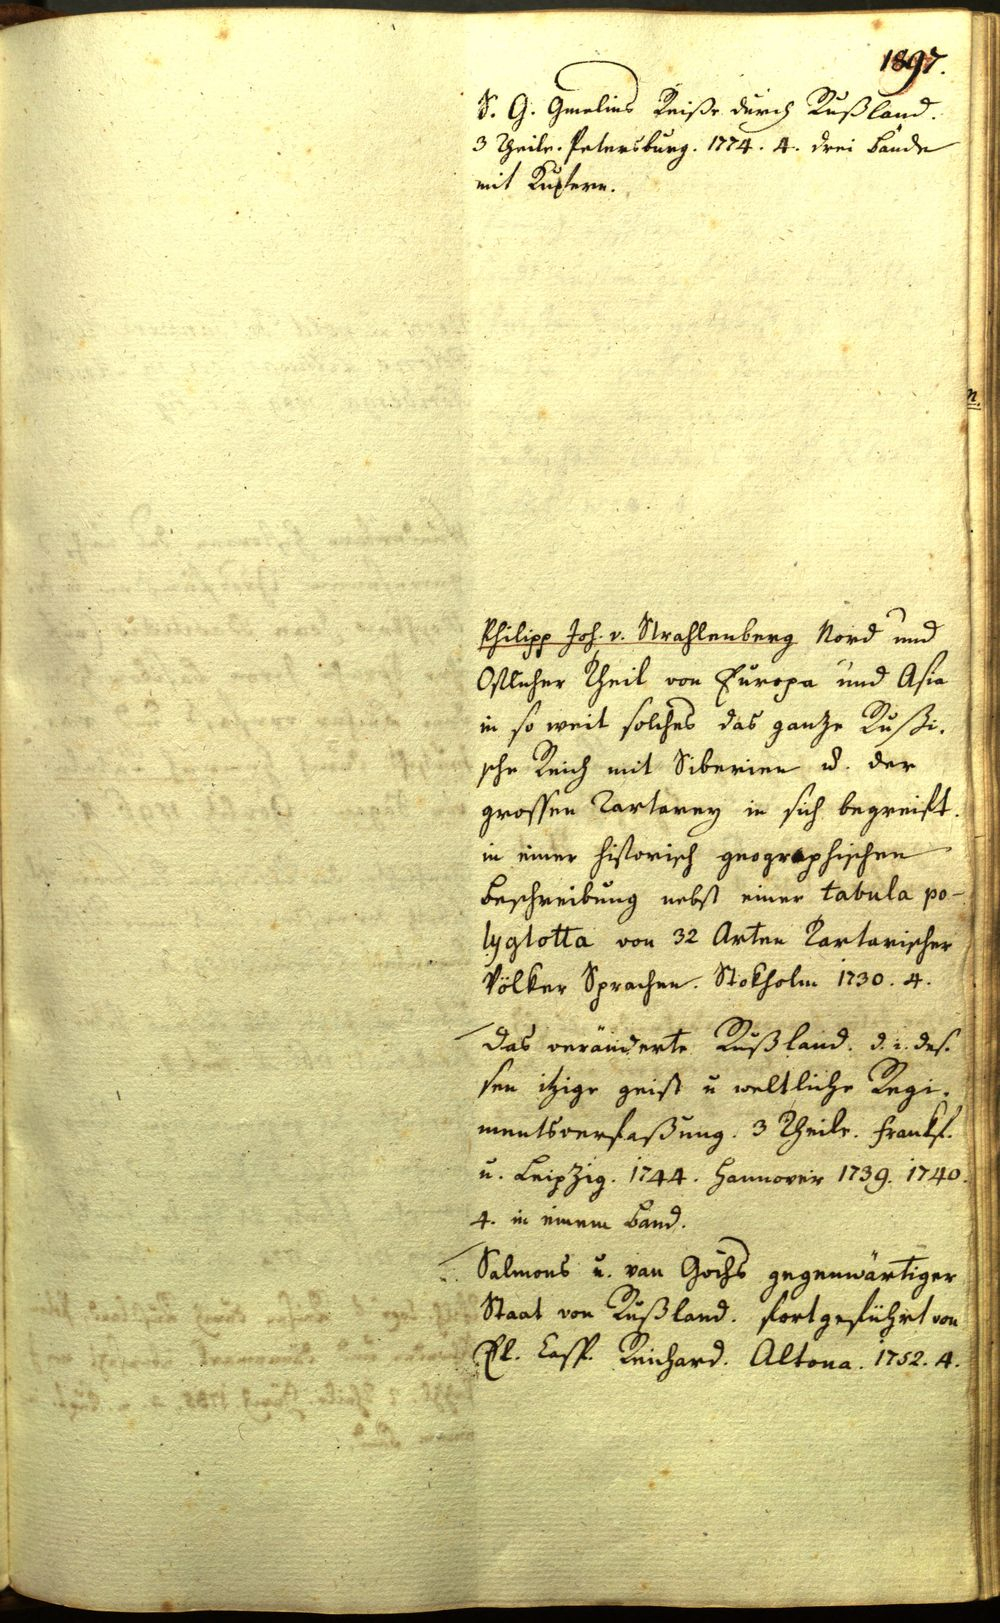 1897.
S. G. Gmelins Reise durch Rußland.
3 Theile. Petersburg. 1774. 4. drei Bände
mit Kupfern.
n.
Philipp Joh. v. Strahlenberg Nord und
Ostlicher Theil von Europa und Asia
in so weit solches das ganze Rußi-
sche Reich mit Siberien u. der
grossen Tartarey in sich begreift.
in einer historisch geographischen
Beschreibung nebst einer tabula po-
lyglotta von 32 Arten Tartarischer
Völker Sprachen. Stokholm 1730. 4.
Das veränderte Rußland. d. i. des-
sen itzige geist u weltliche Regi-
mentsverfaßung. 3 Theile. Frankf.
u. Leipzig. 1744. Hannover 1739. 1740.
4. in einem Band.
Salmons u. van Gochs gegenwärtiger
Staat von Rußland. fortgeführt von
El. Casp. Reichard. Altona. 1752. 4.